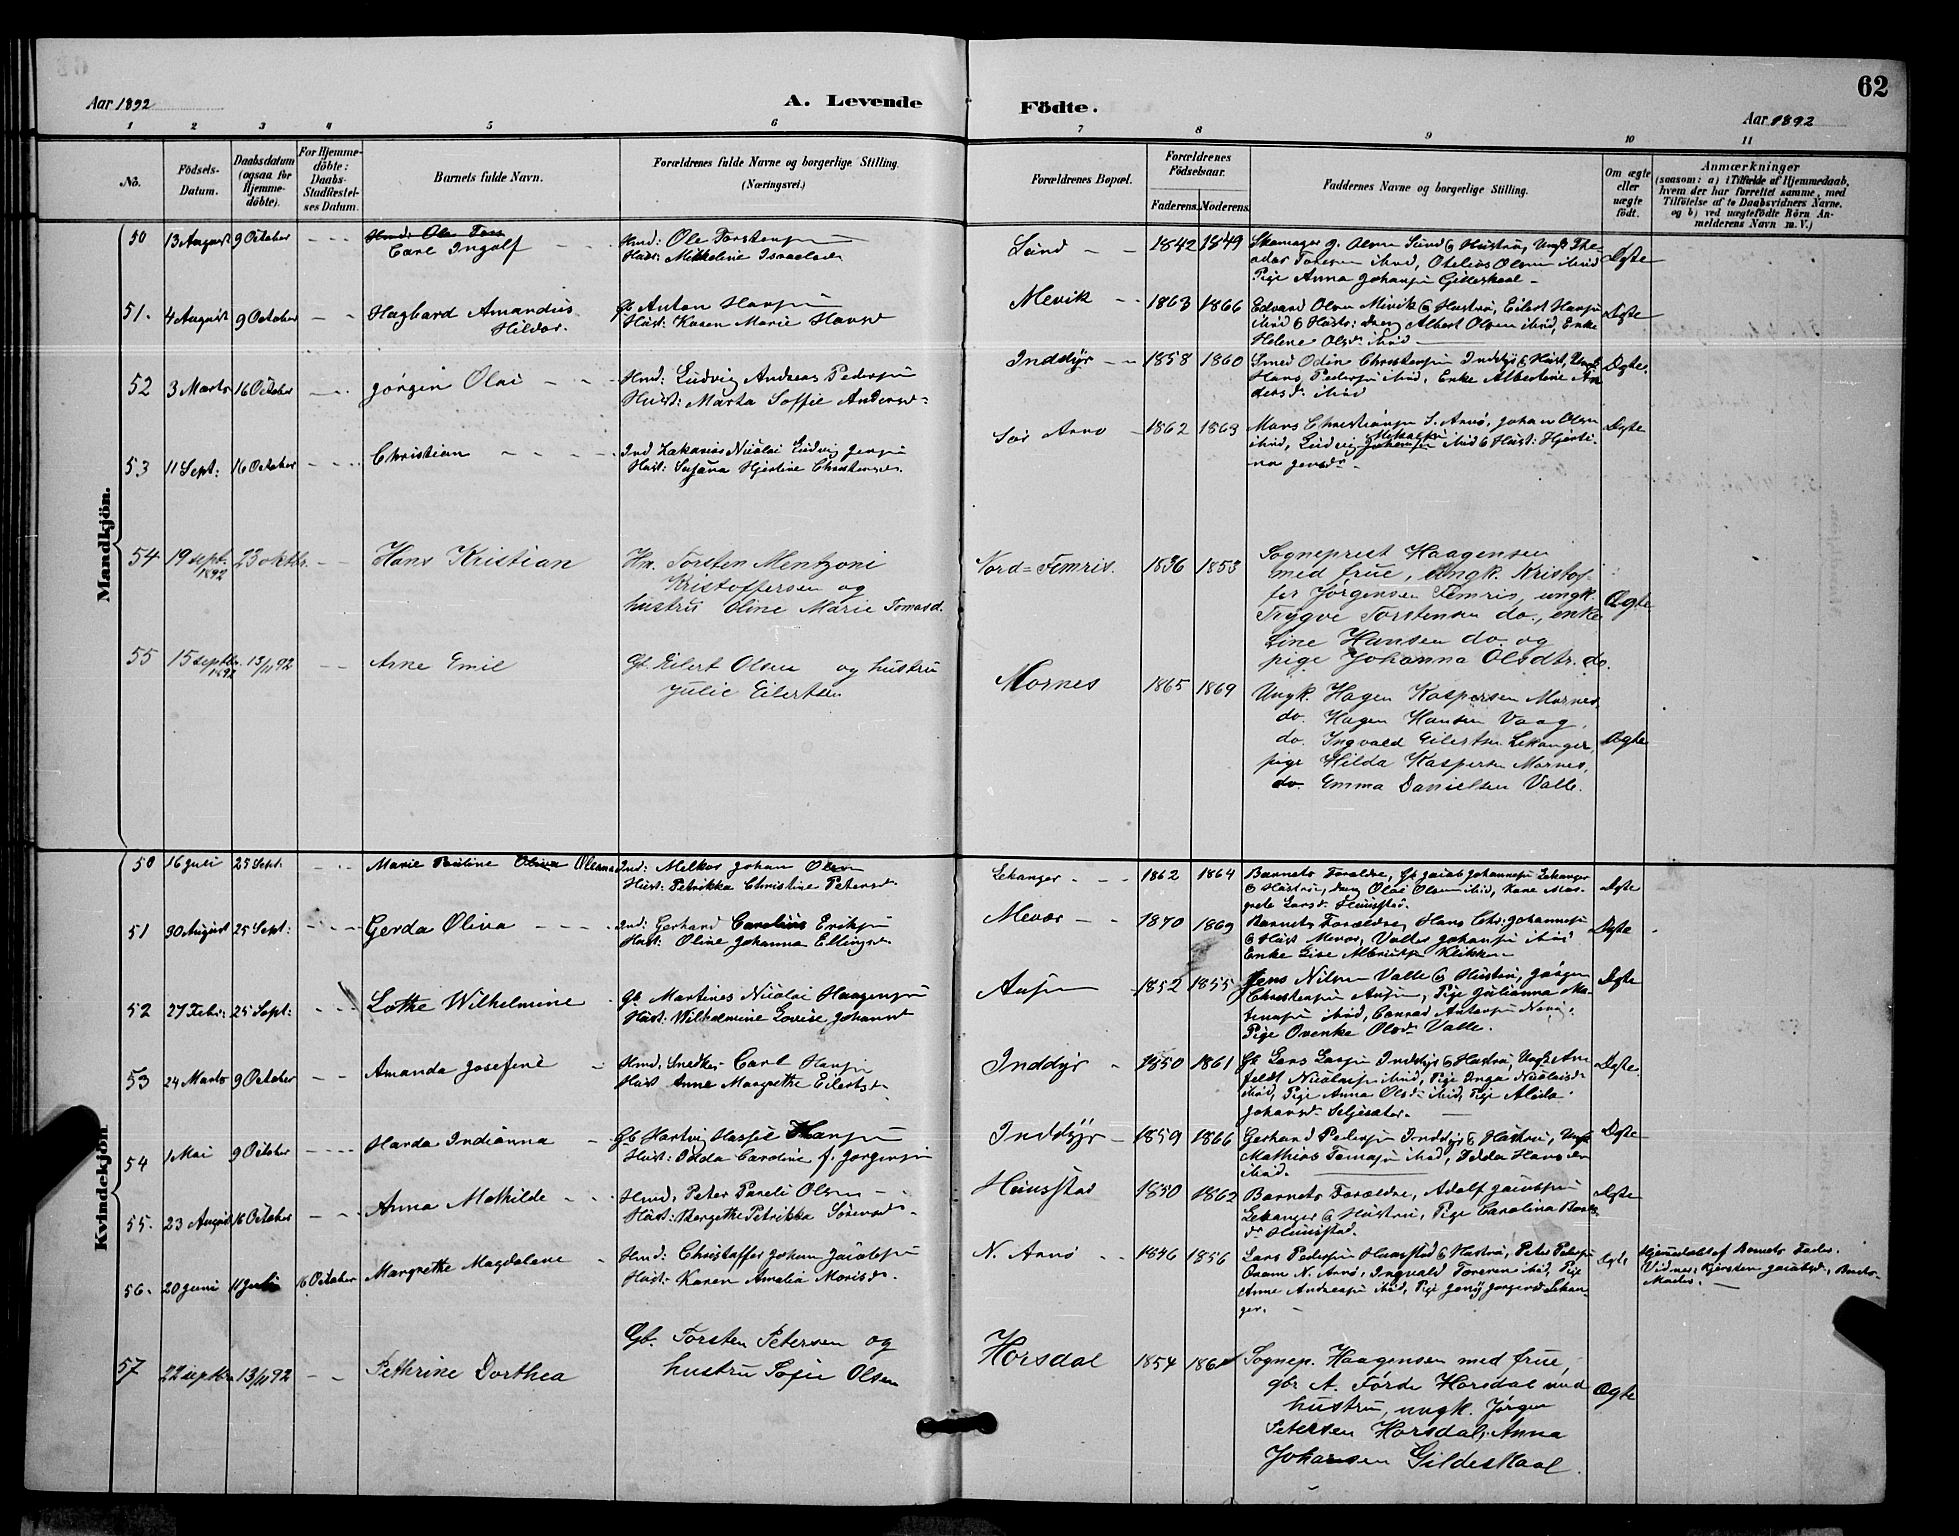 62
Aar 1892
A. Levende Födte.
Aar 1892
1 2 3 4 5 6 7 8 9 10 11
No.
Födsels-
Datum.
Daabsdatum
(ogsaa for
Hjemme-
döbte).
For Hjemme-
döbte:
Daabs-
Stadfæstel-
ses Datum.
Barnets fulde Navn.
Forældrenes fulde Navne og borgerlige Stilling.
(Næringsvei.)
Forældrenes Bopæl.
Forældrenes
Födselsaar.
Faderens. Moderens.
Faddernes Navne og borgerlige Stilling.
Om ægte
eller
uægte
födt.
Anmærkninger
(saasom: a) i Tilfælde af Hjemmedaab,
hvem der har forrettet samme, med
Tilföielse af to Daabsvidners Navne.
og b) ved uægtefödte Börn An-
melderens Navn m. V.)
Mandkjön.
50 13 August 9 October
Carl Ingolf
Hmd: Ole Torstensen
Hust: Mikkeline Israelsdr
Sund 1842 1849
Skomager O. Olsen Sund & Hustru, Ungk The-
odor Toresen ibid, Otelius Olsen ibid
Pige Anna Johansen Gildeskaal
Ægte
51. 4 August 9 October
Hagbard Amandus
Hildor.
Gb Anton Hansen
Hust: Karen Marie Hansd
Mevik 1863 1866
Edvard Olsen Mevik & Hustru, Eilert Hansen
ibid & Hustr: dreng Albert Olsen ibid, Enke
Helene Olsdr ibid
Ægte
52 3 Marts 16 October
Jørgen Olai
Hmd: Ludvig Andreas Pedersen
Hust: Marta Soffie Andersd
Inddyr 1858 1860
Smed Odin Christensen Inddyr & Hust, Ungk
Hans Pedersen ibid, Enke Albertine An
dersdr ibid
Ægte.
53 11 Sept: 16 October
Christian
Ind Zakarias Nicolai Ludvig Jensen
Hust: Susana Hjertine Christensdr
Sør Arnø 1862 1863
Mons Christiansen S. Arnø, Johan Olsen
ibid, Ludvig Johansen ibid & Hust: Hjerti-
na Jensdr
Ægte
54 19 sept. 1892 23 oktbr.
Hans Kristian
Hm. Torsten Mentzoni
Kristoffersen og
hustru Oline Marie Tomasd.
Nord=Femris. 1836 1853
Sogneprest Haagensen
med frue, Ungk. Kristof-
fer Jørgensen Femris, ungk.
Trygve Torstensen do., enke
Line Hansen do. og
pige Johanna Olsdtr. do.
Ægte
55 15 septbr. 1892 13/11 92
Arne Emil
Gb. Eilert Olsen og hustru
Julie Eilertsen
Mornes 1865 1869
Ungk. Hagen Kaspersen Mornes,
do. Hagen Hansen Vaag,
do. Ingvald Eilertsen Lekanger,
pige Hilda Kaspersen Mornes,
do. Emma Danielsen Valle.
Ægte
Kvindekjön
50 16 Juli 25 Sept:
Marie Pauline Oliva Oleana
Ind: Melkor Johan Olsen
Hust: Petrikka Christine Petersdr
Lekanger 1862 1864
Barnets Forældre, Gb Jacob Johannesen Lekanger
& Hustru, dreng Olai Olsen ibid, Kone Mar-
grete Larsdr Hunstad.
Ægte
51 30 August 25 Sept:
Gerda Oliva
Ind: Gerhard Cornelius Eriksen
Hust: Oline Johanna Ellingsdr
Mevær 1870 1869
Barnets Forældre, Hans Chr: Johannesen
& Hust Mevær, Valter Johansen ibid
Enke Lise Albrigtsen Klikken
Ægte
52 27 Febr: 25 Sept:
Lothe Wilhelmine
Gb Martines Nicolai Haagensen
Hust: Wilhelmine Lovise Johansd
1852 1855
Jens Nilsen Valle & Hustru, Jørgen
Pige Ovenke Olsdr Valle.
Ægte
53 24 Marts 9 October
Amanda Josefine
Hmd, Snedker Carl Hansen
Hust Anne Margrethe Eilertsd
Inddyr 1850 1861
Gb Lars Larsen Inddyr & Hustru, Ungk Arn
feldt Nicolaisen ibid, Pige Inga Nicolaisdr
ibid, Pige Anna Olsdr ibid, Pige Alida
Johansdr Seljesæter.
Ægte
54 1 Mai 9 October
Harda Indianna
Gb Hartvig Hassel Hansen
Hust: Edda Caroline f. Jørgensen
Inddyr 1859 1866
Gerhard Pedersen Inddyr & Hustru, Ungk
Mathias Tomasen ibid, Edda Hansdr
ibid.
Ægte
55. 23 August 16 October
Anna Mathilde
Hmd, Peter Pareli Olsen
Hust: Bergethe Petrikka Sørensd
Hunstad 1850 1862
Barnets Forældre, Adolf Jacobsen
Lekanger & Hustru, Pige Carolina
Hunstad.
Ægte
56. 20 Juni 11 Juli 16 October
Margrethe Magdalene
Hmd: Christoffer Johan Jacobsen
Hust: Karen Amalia Morisdr
N. Arnø 1846 1856
Lars Pedersen Hunstad & Hustru, Peter Petersen
N. Arnø, Ingvald Toresen ibid, Pige
Anne Andreasen ibid, Pige Jenny Jørgensd Lekan-
ger.
Ægte
Hjemmedøbt af Barnets Fader.
Vidner: Kjersten Jacobsd, Barnets
Moder.
57 22 septbr 13/11 92
Pethrine Dorthea
Gb. Torsten Petersen og
hustru Sofie Olsen
Horsdal 1854
Sognep. Haagensen med frue,
gbr A. Førde Horsdal med
hustru, ungk. Jørgen
Petersen Horsdal, Anna
Johansen Gildeskaal.
Ægte